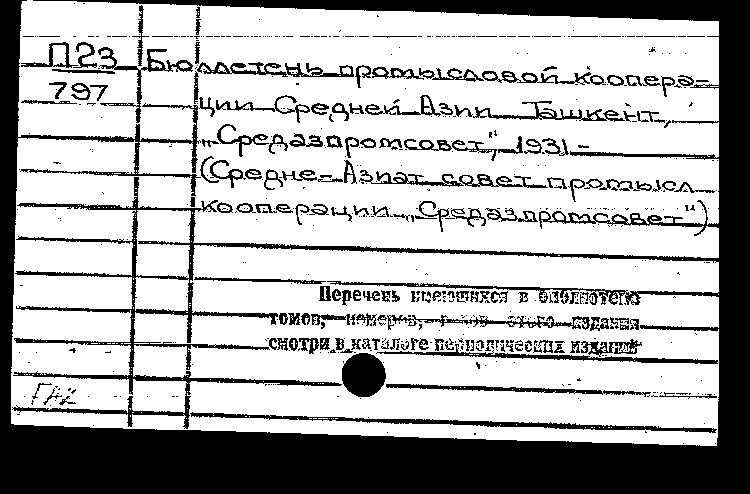 П23
797
Бюллетень промысловой коопера-
ции Средней Азии. Ташкент,
„Средазпромсовет", 1931 –
(Средне-Азиат. совет промысл.
кооперации „Средазпромсовет")
Перечень имеющихся в библиотеке
томов, номеров, г-дов этого издания
смотри в каталоге периодических изданий